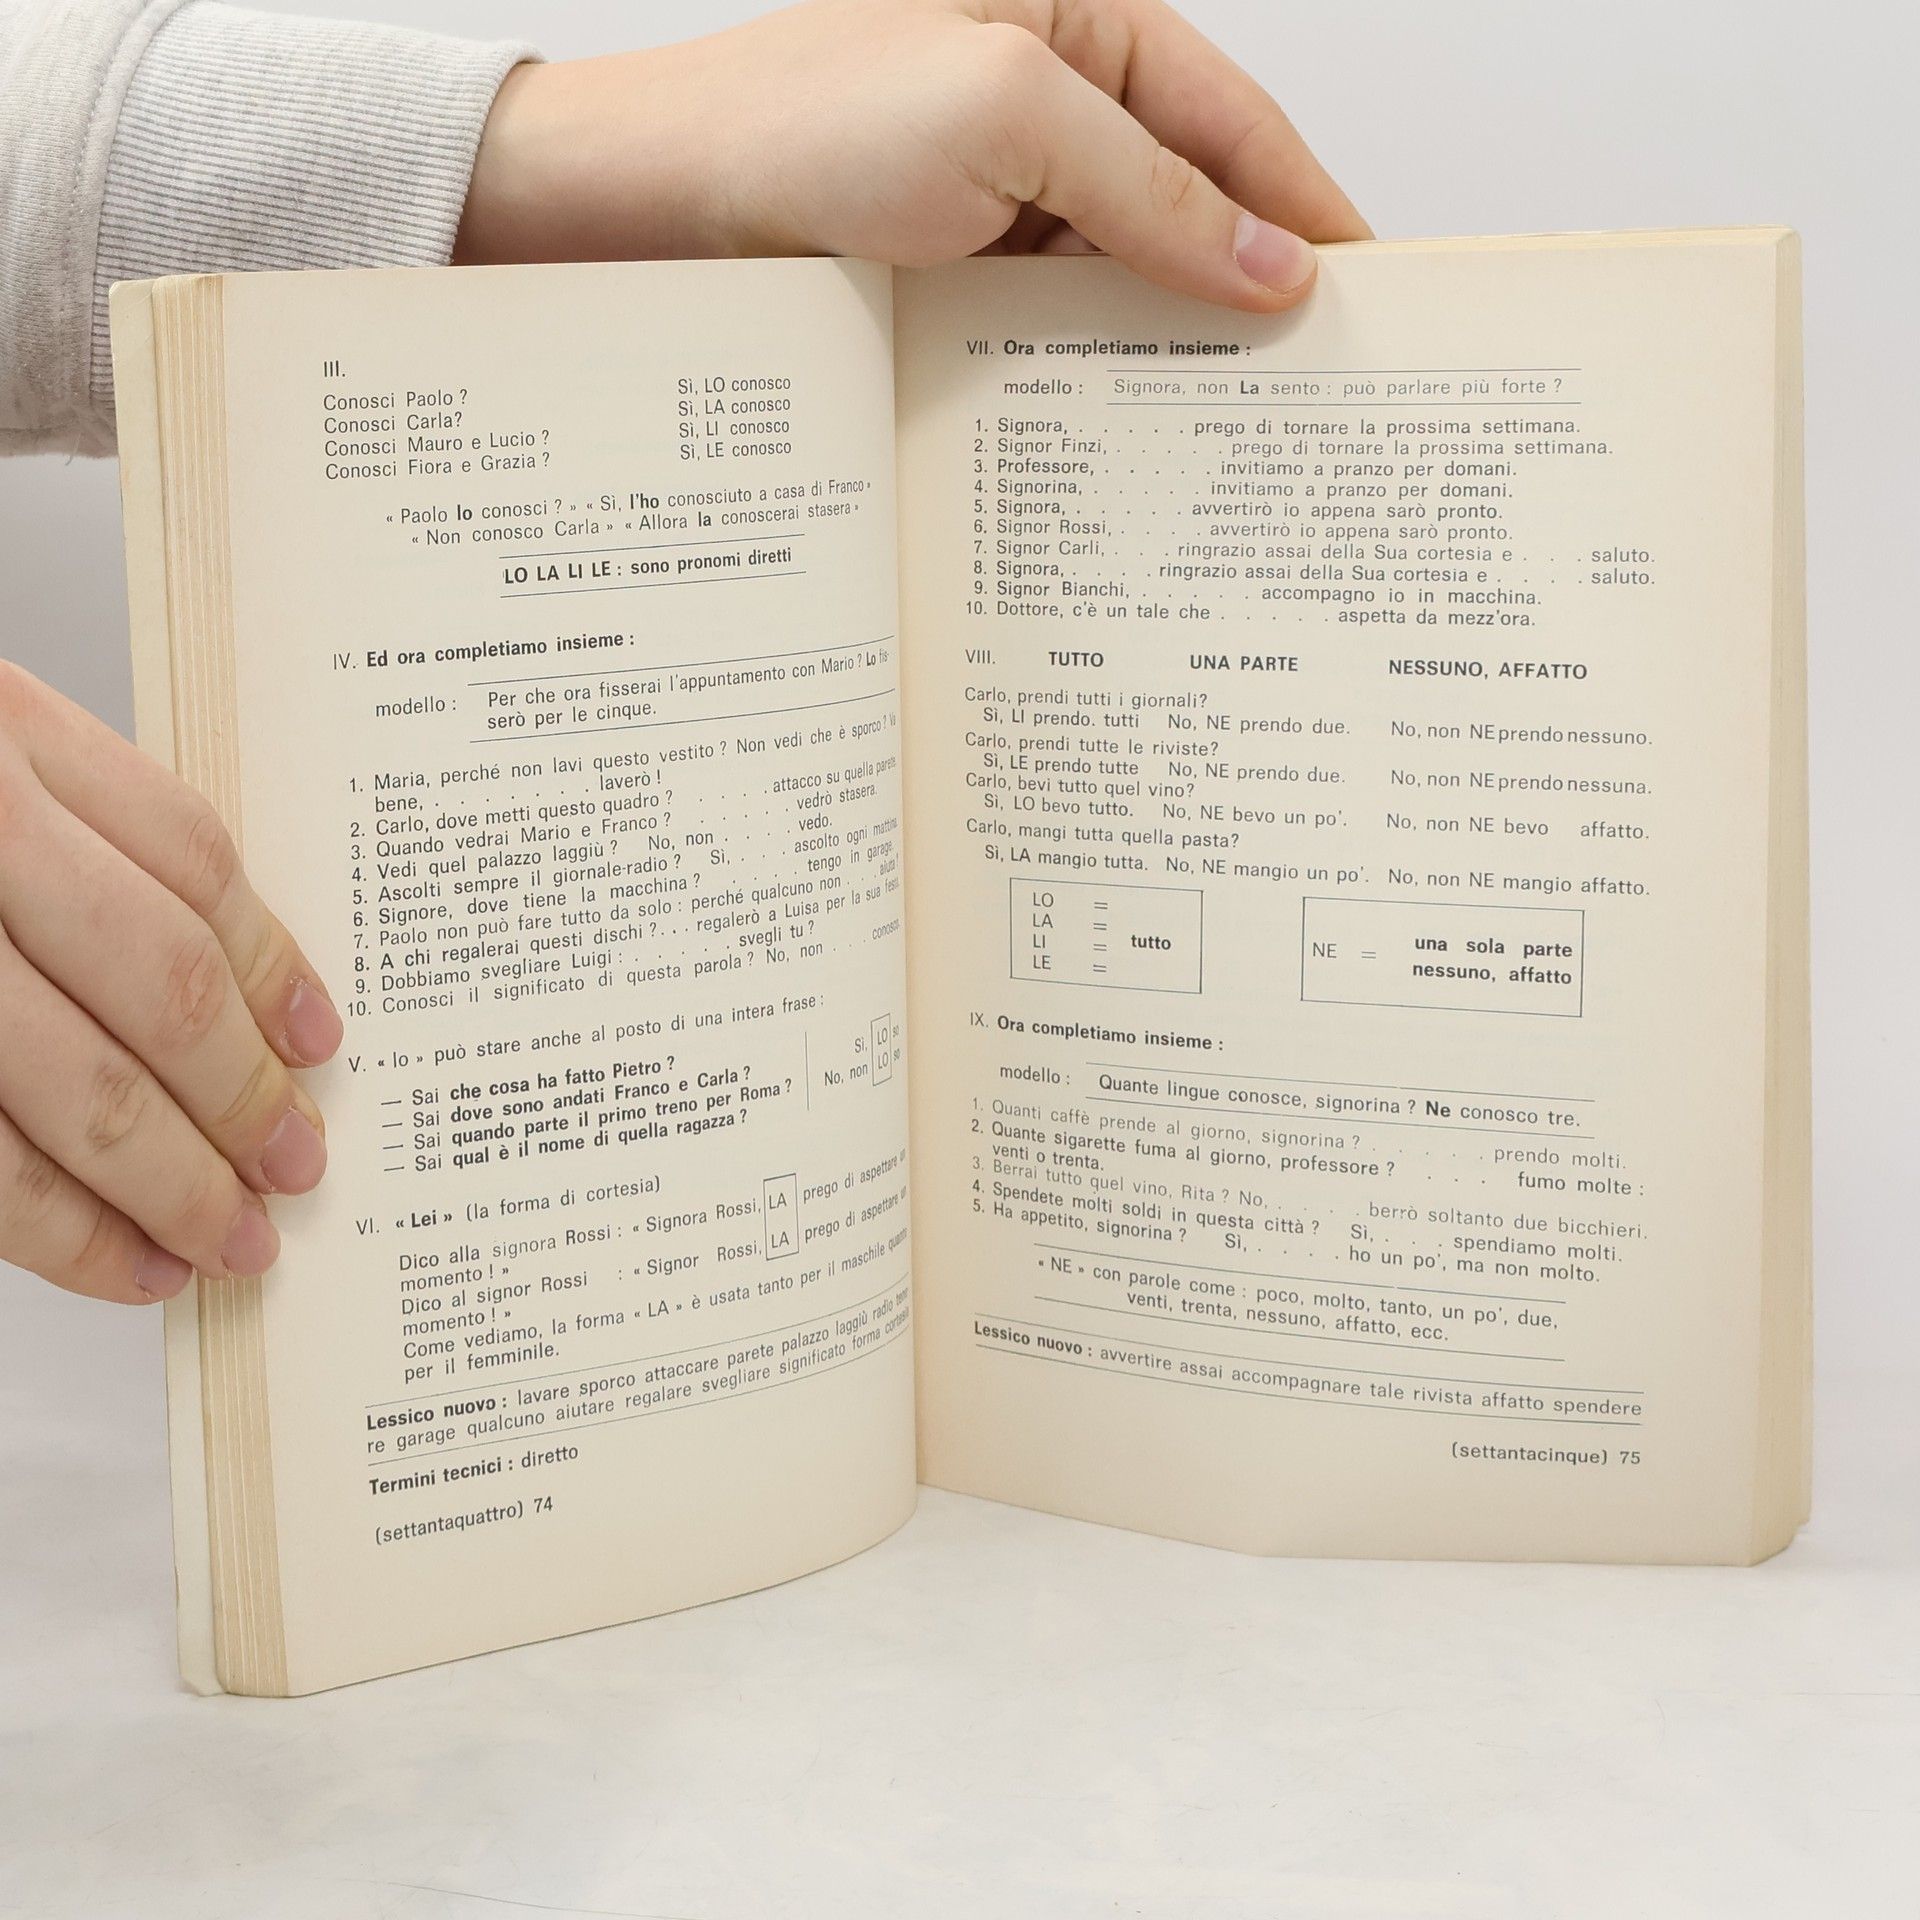 III.
Conosci Paolo ? Sì, LO conosco
Conosci Carla? Sì, LA conosco
Conosci Mauro e Lucio ? Sì, LI conosco
Conosci Fiora e Grazia ? Sì, LE conosco
« Paolo lo conosci ? » « Sì, l'ho conosciuto a casa di Franco »
« Non conosco Carla » « Allora la conoscerai stasera »
LO LA LI LE : sono pronomi diretti
IV. Ed ora completiamo insieme :
modello : Per che ora fisserai l'appuntamento con Mario ? Lo fis-
serò per le cinque.
1. Maria, perché non lavi questo vestito ? Non vedi che è sporco ?
bene, . . . . . . . laverò !
2. Carlo, dove metti questo quadro ? . . . . attacco su quella parete.
3. Quando vedrai Mario e Franco ? . . . . . vedrò stasera.
4. Vedi quel palazzo laggiù ? No, non . . . . vedo.
5. Ascolti sempre il giornale-radio ? Sì, . . . ascolto ogni mattina.
6. Signore, dove tiene la macchina ? . . . . tengo in garage.
7. Paolo non può fare tutto da solo : perché qualcuno non . . . aiuta !
8. A chi regalerai questi dischi ? . . . regalerò a Luisa per la sua festa.
9. Dobbiamo svegliare Luigi : . . . . . svegli tu ?
10. Conosci il significato di questa parola ? No, non . . . conosco.
V. « lo » può stare anche al posto di una intera frase :
— Sai che cosa ha fatto Pietro ? Sì, LO so
— Sai dove sono andati Franco e Carla ? No, non LO so
— Sai quando parte il primo treno per Roma ?
— Sai qual è il nome di quella ragazza ?
VI. « Lei » (la forma di cortesia)
Dico alla signora Rossi : « Signora Rossi, LA prego di aspettare un
momento ! »
Dico al signor Rossi : « Signor Rossi, LA prego di aspettare un
momento ! »
Come vediamo, la forma « LA » è usata tanto per il maschile quanto
per il femminile.
Lessico nuovo : lavare sporco attaccare parete palazzo laggiù radio tene-
re garage qualcuno aiutare regalare svegliare significato forma cortesia
Termini tecnici : diretto
(settantaquattro) 74
VII. Ora completiamo insieme :
modello : Signora, non La sento : può parlare più forte ?
1. Signora, . . . . . prego di tornare la prossima settimana.
2. Signor Finzi, . . . . . prego di tornare la prossima settimana.
3. Professore, . . . . . invitiamo a pranzo per domani.
4. Signorina, . . . . . invitiamo a pranzo per domani.
5. Signora, . . . . . avvertirò io appena sarò pronto.
6. Signor Rossi, . . . . avvertirò io appena sarò pronto.
7. Signor Carli, . . . ringrazio assai della Sua cortesia e . . . saluto.
8. Signora, . . . . ringrazio assai della Sua cortesia e . . . . saluto.
9. Signor Bianchi, . . . . . accompagno io in macchina.
10. Dottore, c'è un tale che . . . . . aspetta da mezz'ora.
VIII. TUTTO UNA PARTE NESSUNO, AFFATTO
Carlo, prendi tutti i giornali?
Sì, LI prendo. tutti No, NE prendo due. No, non NE prendo nessuno.
Carlo, prendi tutte le riviste?
Sì, LE prendo tutte No, NE prendo due. No, non NE prendo nessuna.
Carlo, bevi tutto quel vino?
Sì, LO bevo tutto. No, NE bevo un po'. No, non NE bevo affatto.
Carlo, mangi tutta quella pasta?
Sì, LA mangio tutta. No, NE mangio un po'. No, non NE mangio affatto.
LO =
LA =
LI = tutto
LE =
NE = una sola parte
nessuno, affatto
IX. Ora completiamo insieme :
modello : Quante lingue conosce, signorina ? Ne conosco tre.
1. Quanti caffè prende al giorno, signorina ? . . . . . prendo molti.
2. Quante sigarette fuma al giorno, professore ? . . . fumo molte :
venti o trenta.
3. Berrai tutto quel vino, Rita ? No, . . . . berrò soltanto due bicchieri.
4. Spendete molti soldi in questa città ? Sì, . . . spendiamo molti.
5. Ha appetito, signorina ? Sì, . . . . ho un po', ma non molto.
« NE » con parole come : poco, molto, tanto, un po', due,
venti, trenta, nessuno, affatto, ecc.
Lessico nuovo : avvertire assai accompagnare tale rivista affatto spendere
(settantacinque) 75